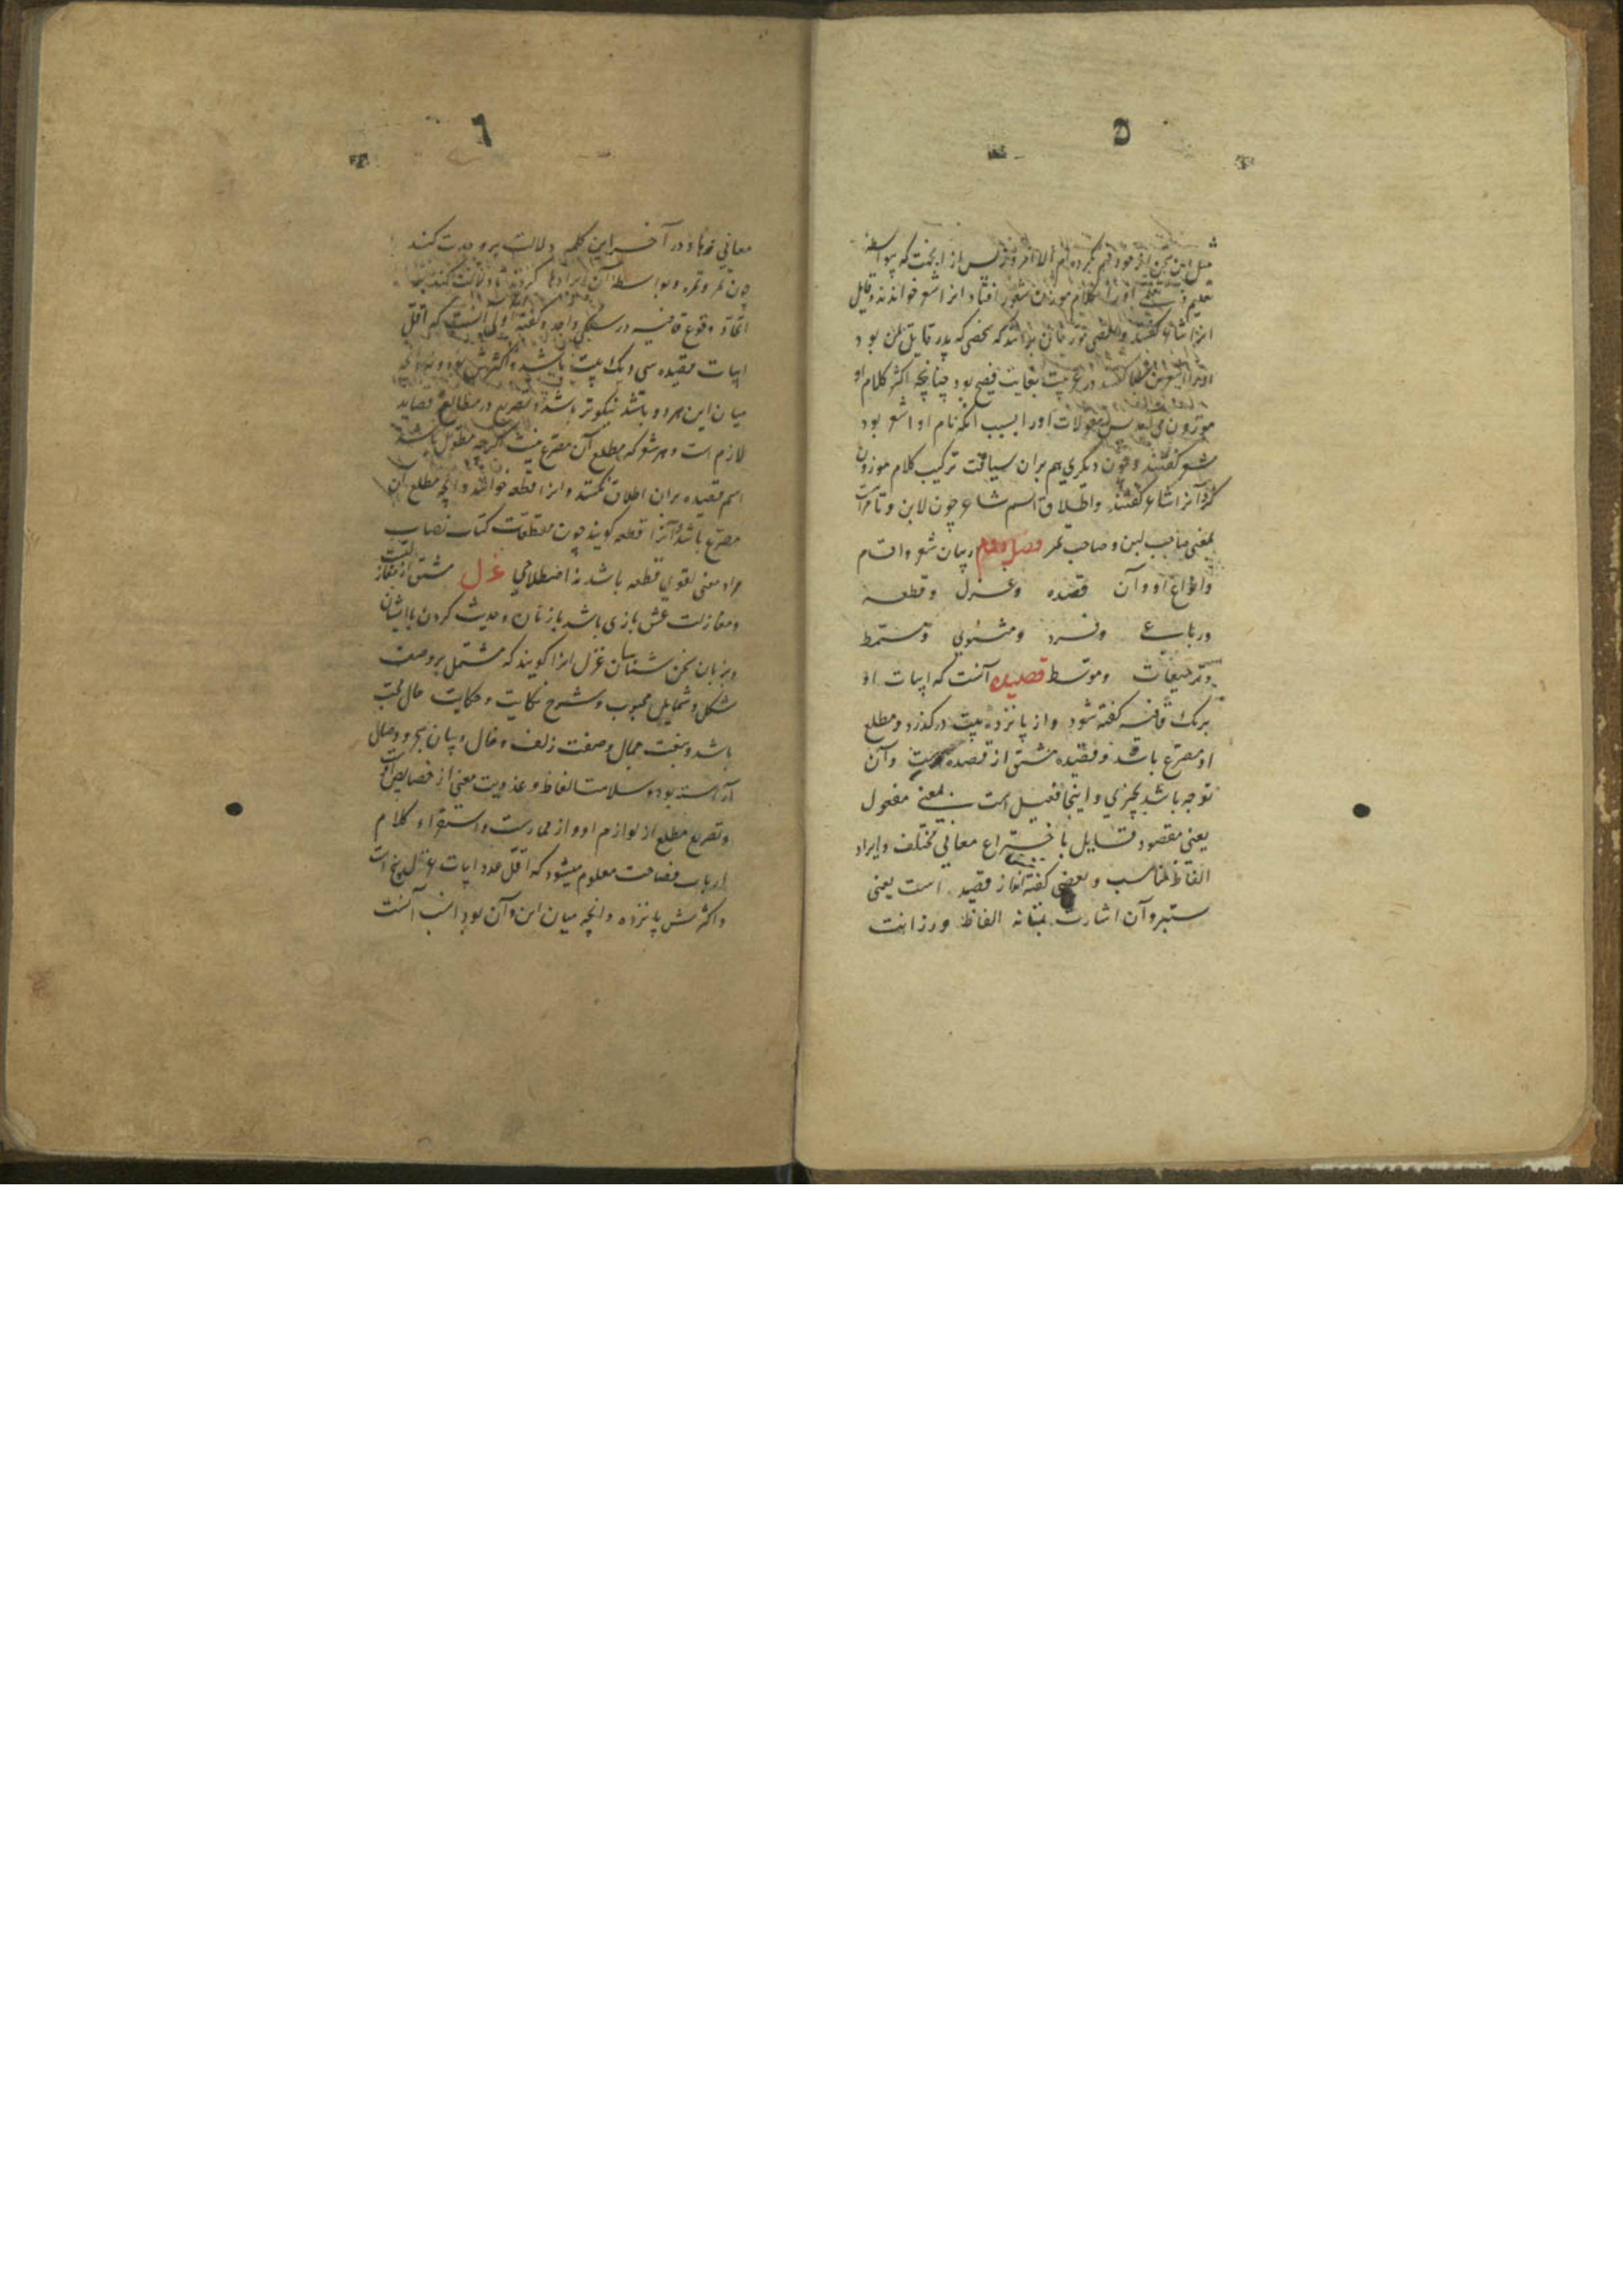 ۵
مثل این سخن از خود فهم نکرده ام الا امروز پس از این جهت که بواسطه
تعلیم او را کلام موزون شعور افتاد انرا شعر خواندند و قایل
انرا شاعر گفتند و بعضی مورخان برانند که شخصی که پدر قایل یمن بود
او را اشعر بن سبا گفتند در عربیت بغایت فصیح بود چنانچه اکثر کلام او
موزون می آمد پس مقولات او را بسبب آنکه نام او اشعر بود
شعر گفتند و چون دیگری هم بران سیاقت ترکیب کلام موزون
کرد آنرا شاعر گفتند و اطلاق اسم شاعر چون لابن و تامر است
بمعنی صاحب لبن و صاحب تمر فصل دوم در بیان شعر و اقسام
و انواع او و آن قصیده و غزل و قطعه
و رباعی و فرد و مثنوی و مسمط
و ترجیعات و موشط قصیده آنست که ابیات او
بر یک قافیه گفته شود و از پانزده بیت درگذرد و مطلع
او مصرع باشد و قصیده مشتق از قصد است و آن
توجه باشد بچیزی و اینجا فعیل است بمعنی مفعول
یعنی مقصود قایل با ختراع معانی مختلف و ایراد
الفاظ مناسب و بعضی گفته اند از قصید است یعنی
ستبر و آن اشارت بمتانه الفاظ و رزانت
۶
معانی و ها در آخر این کلمه دلالت بر وحدت کند
چون تمر و تمره و بواسطه آن ایراد ها کردند تا دلالت کند بر
اتحاد وقوع قافیه در سلک واحد و گفته اولی آنست که اقل
ابیات قصیده سی و یک بیت باشد و اکثرش نود و نه و آنچه
میان این هر دو باشد نیکوتر باشد و تصریع در مطالع قصاید
لازم است و هر شعر که مطلع آن مصرع نیست اگرچه مطول باشد
اسم قصیده بران اطلاق نکنند و انرا قطعه خوانند و آنچه مطلع آن
مصرع باشد و آنرا قطعه گویند چون مقطعات کتاب نصاب
مراد معنی لغوی قطعه باشد نه اصطلاحی غزل مشتق از مغازلتست
و مغازلت عشق بازی باشد با زنان و حدیث کردن با ایشان
و بزبان سخن شناسان غزل انرا گویند که مشتمل بر وصف
شکل و شمایل محبوب و شرح شکایت و حکایت حال محب
باشد و بنعت جمال و صفت زلف و خال و بیان هجر و وصال
آراسته بود و سلامت الفاظ و عذوبت معنی از خصایص اوست
و تصریع مطلع از لوازم او و از ممارست و استقراء کلام
ارباب فصاحت معلوم میشود که اقل عدد ابیات غزل پنج است
و اکثرش پانزده و آنچه میان این و آن بود انسب آنست